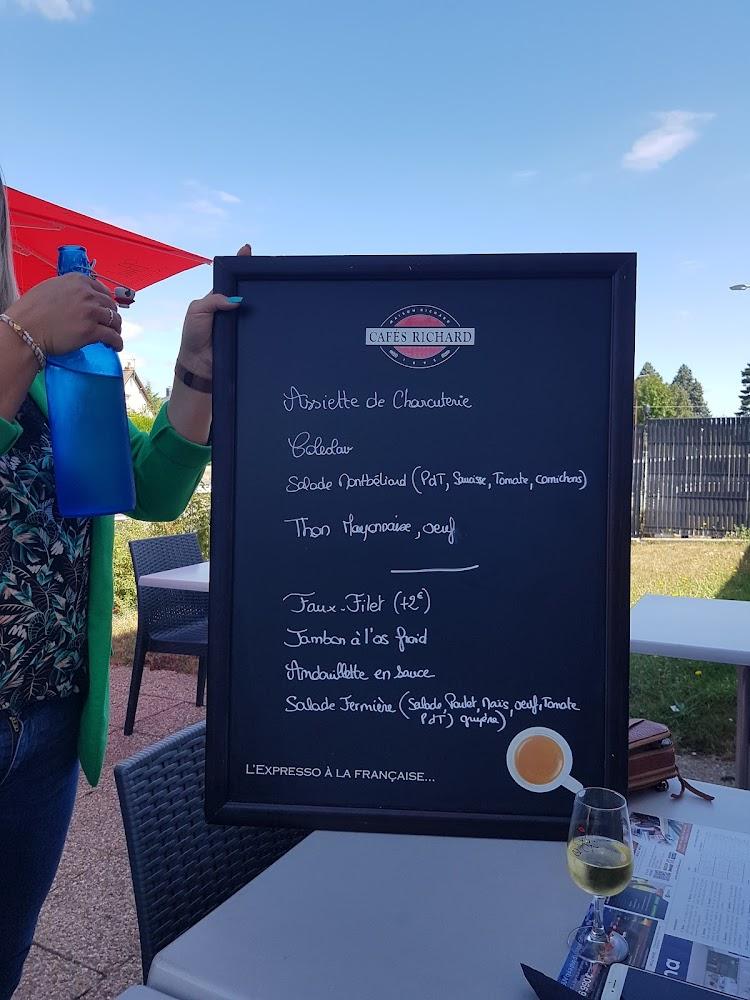 MAISON RICHARD
CAFÉS RICHARD
1892
Assiette de Charcuterie
Coleslaw
Salade Montbéliard (PdT, Saucisse, Tomate, cornichons)
Thon Mayonnaise, oeuf
Faux-Filet (+2€)
Jambon à l'os froid
Andouillette en sauce
Salade Fermière (Salade, Poulet, Maïs, oeuf, Tomate
PdT) gruyère)
L'EXPRESSO À LA FRANÇAISE...